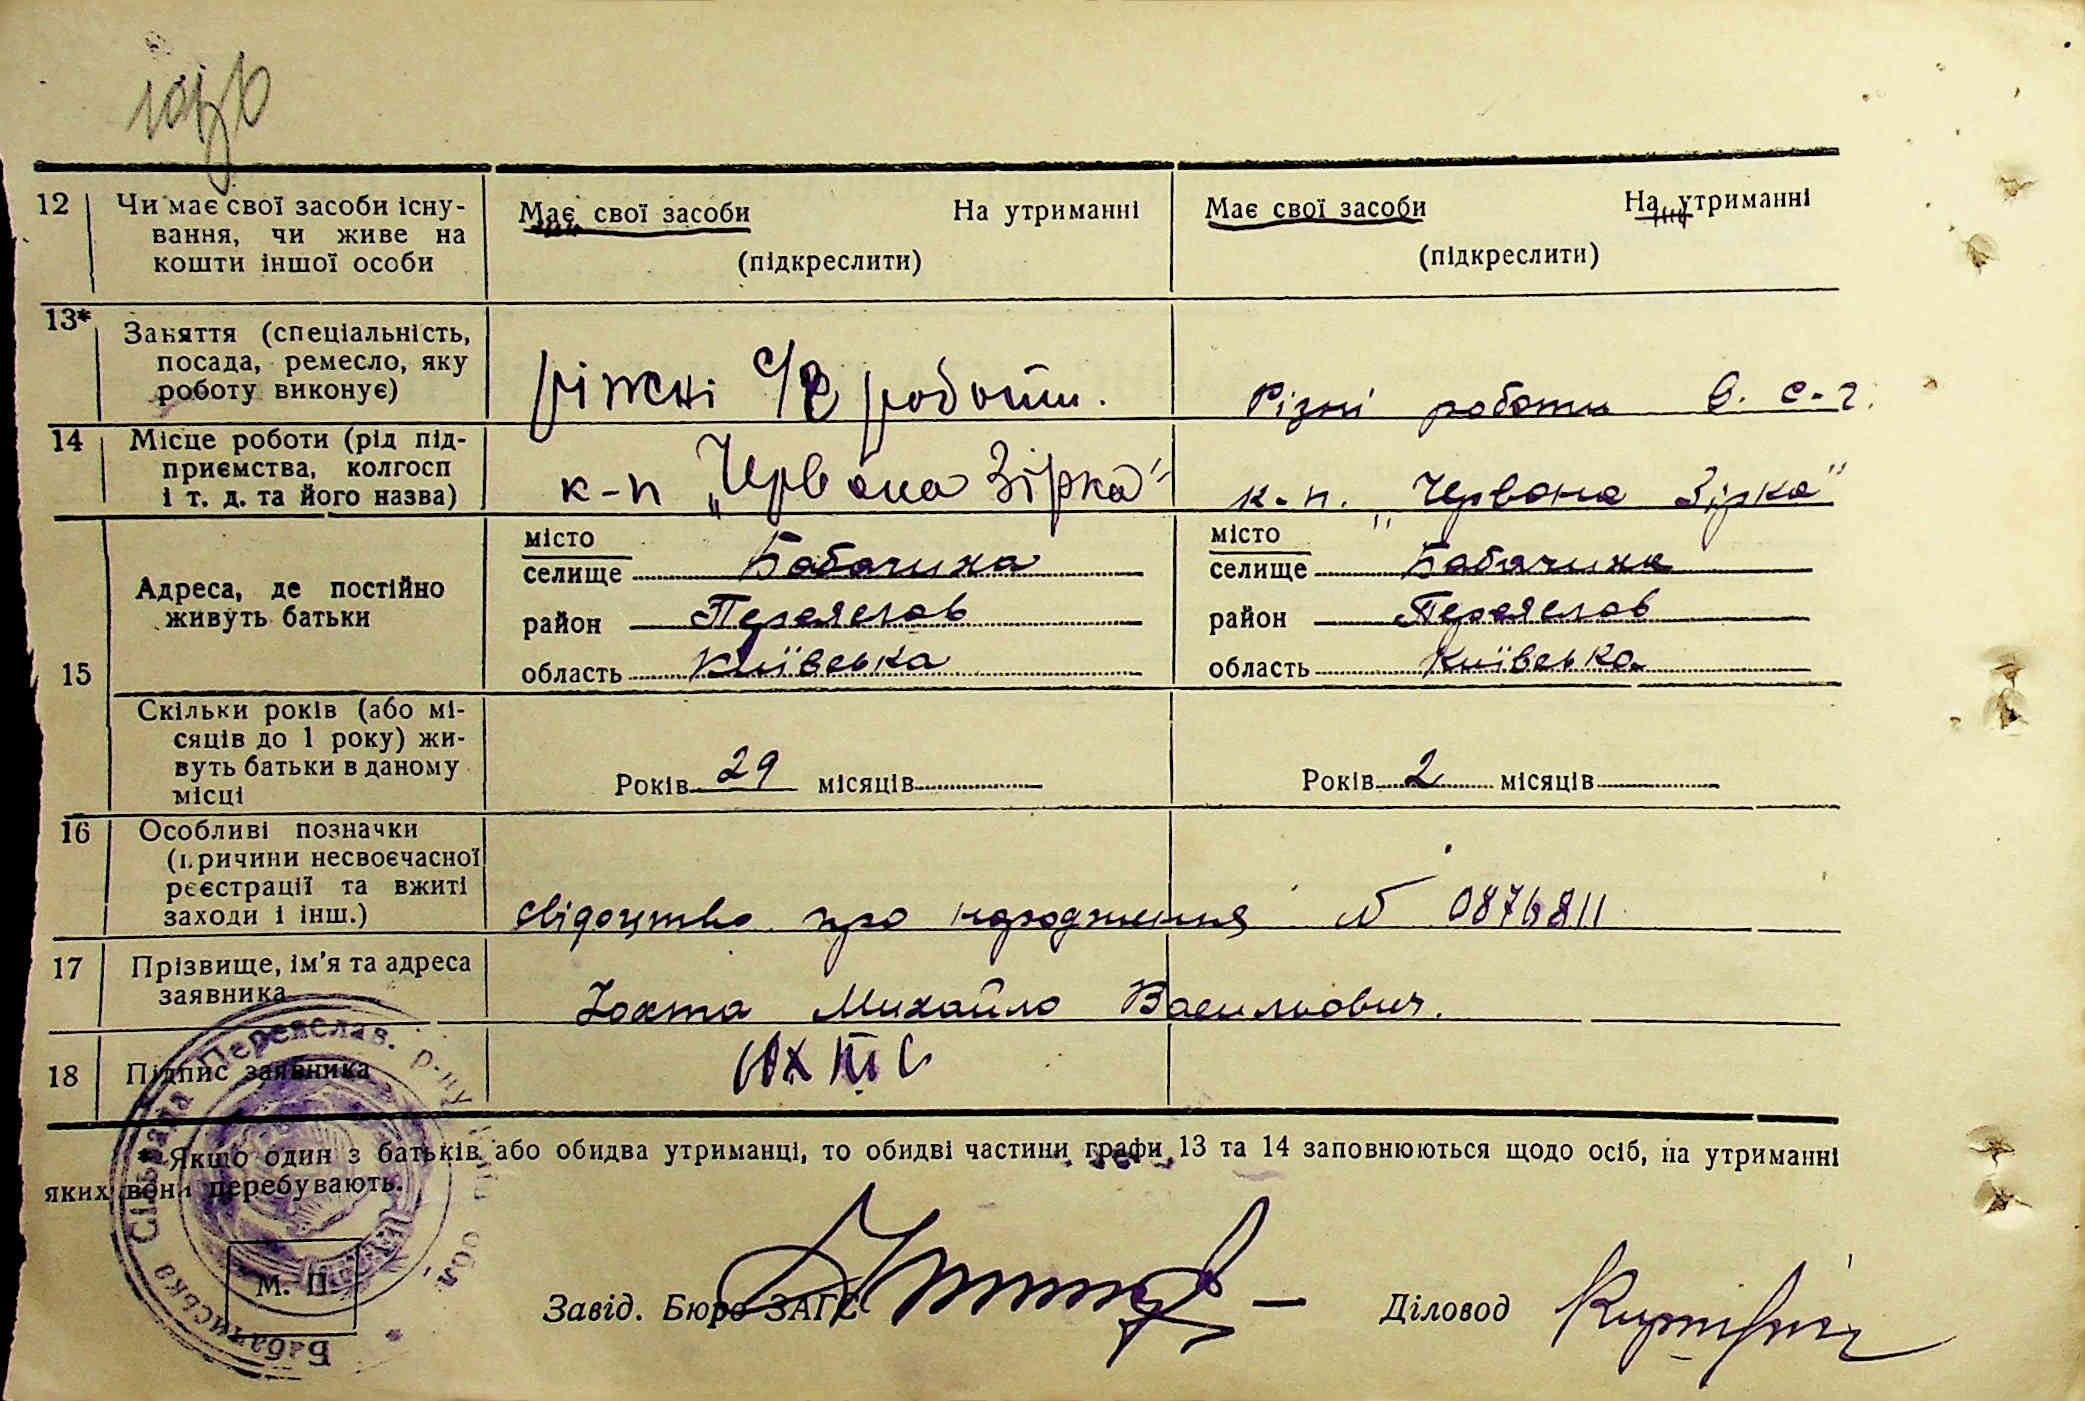 12 Чи має свої засоби існу-
вання, чи живе на
кошти іншої особи
Має свої засоби На утриманні
(підкреслити)
Має свої засоби На утриманні
(підкреслити)
13* Заняття (спеціальність,
посада, ремесло, яку
роботу виконує)
ріжні с/г роботи.
Різні роботи в. с-г.
14 Місце роботи (рід під-
приємства, колгосп
і т. д. та його назва)
к-п „Червона Зірка"
к-п. „Червона Зірка"
15 Адреса, де постійно
живуть батьки
місто
селище Бабачиха
район Переяслав
область Київська
місто
селище Бабачиха
район Переяслав
область Київська
Скільки років (або мі-
сяців до 1 року) жи-
вуть батьки в даному
місці
Років 29 місяців
Років 2 місяців
16 Особливі позначки
(причини несвоєчасної
реєстрації та вжиті
заходи і інш.)
свідоцтво про народження № 0876811
17 Прізвище, ім'я та адреса
заявника
Михайло Васильович.
18 Підпис заявника
* Якщо один з батьків або обидва утриманці, то обидві частини графи 13 та 14 заповнюються щодо осіб, на утриманні
яких вони перебувають.
Бабачиська Сільрада Переяслав. р-ну обл.
М. П.
Завід. Бюро ЗАГС
Діловод